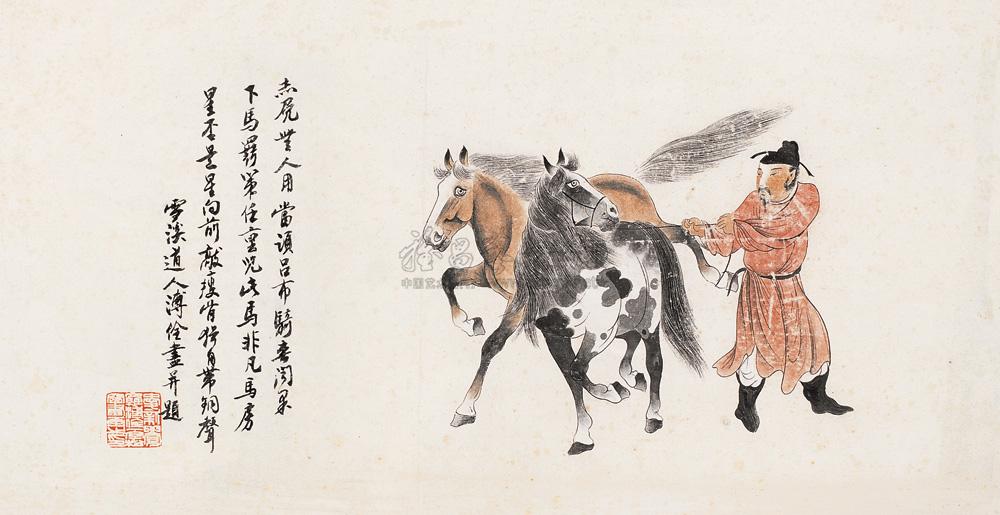 赤兔無人用當須呂布騎吾聞果
下馬羈策任蛮兒此馬非凡馬房
星本是星向前敲瘦骨猶自帶銅聲
雪溪道人溥佺畫并題